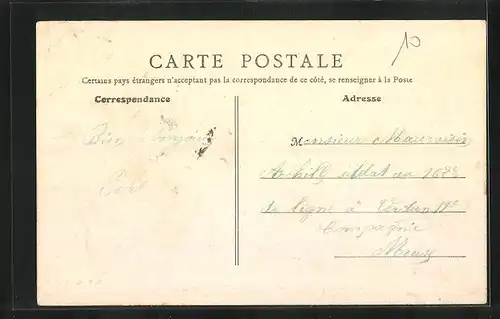 10
CARTE POSTALE
Certains pays étrangers n'acceptant pas la correspondance de ce côté, se renseigner à la Poste
Correspondance
Adresse
Monsieur
soldat au
de ligne à Verdun
Compagnie
Meuse